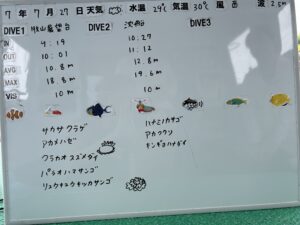 7 年 7 月 27 日 天気 水温 29℃ 気温 30℃ 風 西 波 2.5m
DIVE1 DIVE2 DIVE3
IN 9:19 10:27
OUT 10:01 11:12
AVG 10.8m 12.8m
MAX 18.8m 19.6m
VIS 10m 10m
サカサクラゲ
アカメハゼ
クラカオスズメダイ
パラオハマサンゴ
リュウキュウキッカサンゴ
ハナミノカサゴ
アカククリ
キンギョハナダイ